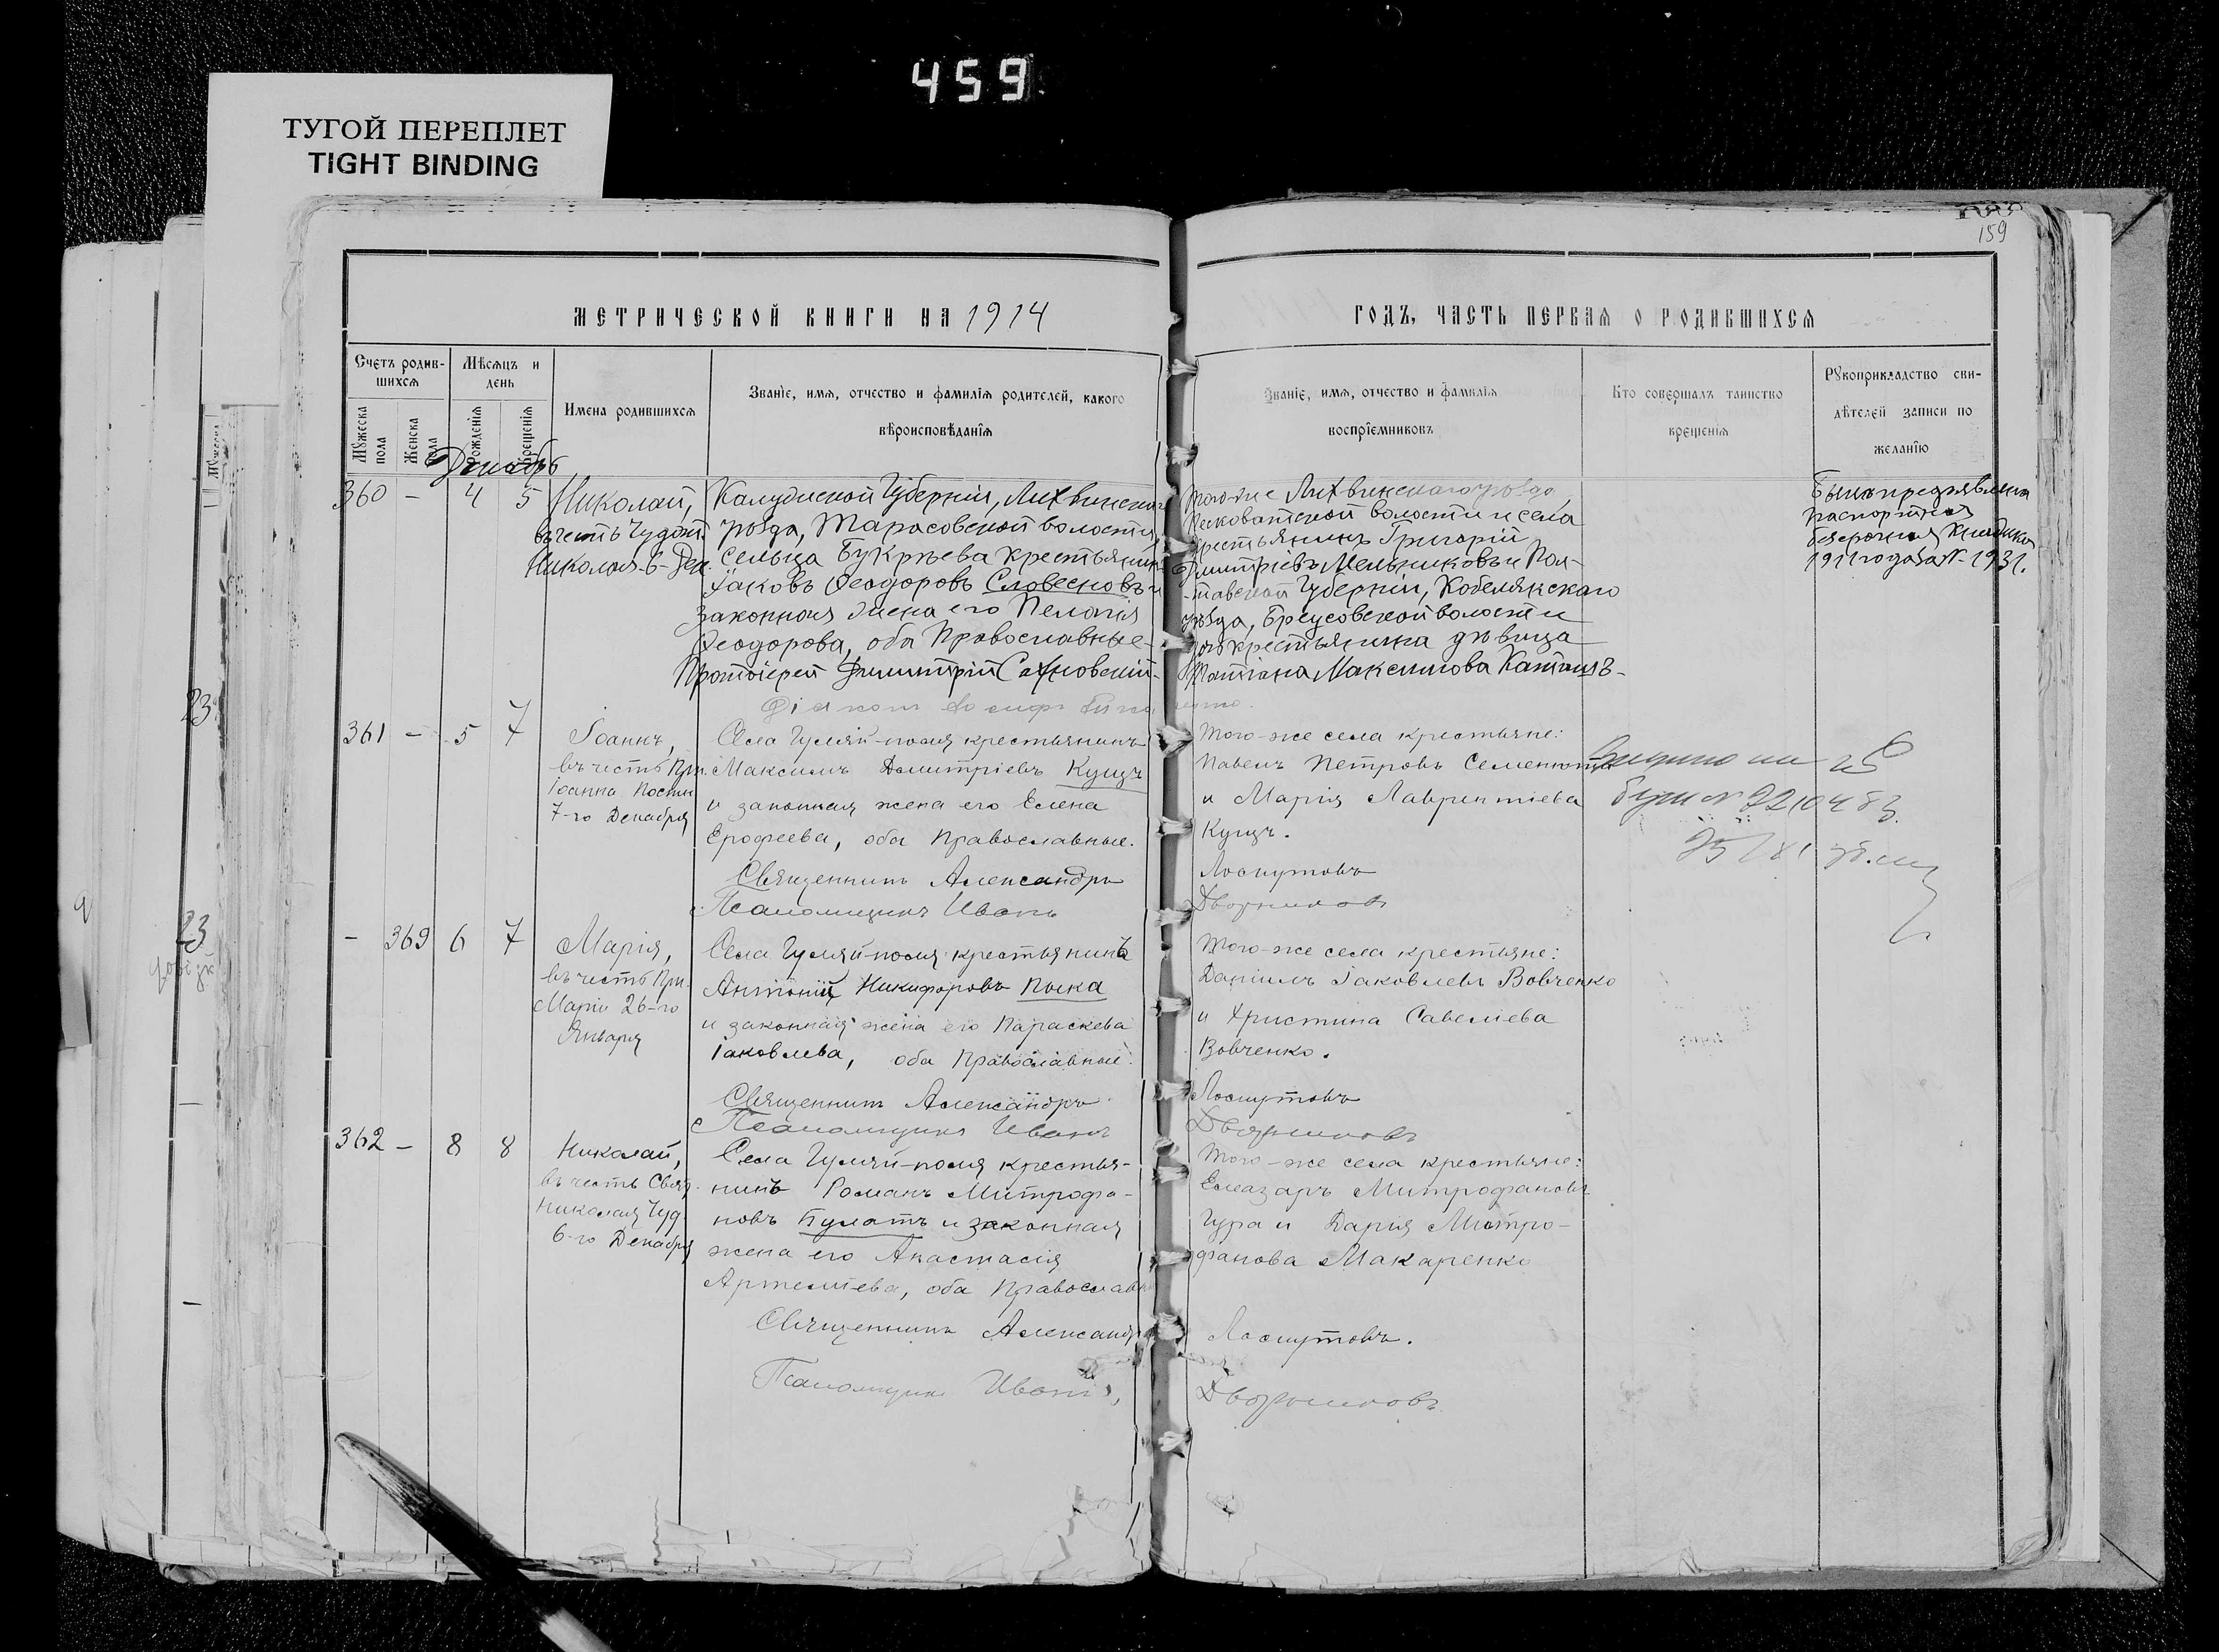 459
ТУГОЙ ПЕРЕПЛЕТ
TIGHT BINDING
159
МЕТРИЧЕСКОЙ КНИГИ НА 1914
ГОДЪ, ЧАСТЬ ПЕРВАЯ О РОДИВШИХСЯ
Счетъ родив-
шихся
Мѣсяцъ и
день
Мужеска
пола
Женска
пола
Рожденія
Крещенія
Имена родившихся
Званіе, имя, отчество и фамилія родителей, какого
вѣроисповѣданія
Званіе, имя, отчество и фамилія
воспріемниковъ
Кто совершалъ таинство
крещенія
Рукоприкладство сви-
дѣтелей записи по
желанію
Декабрь
360 - 4 5
Николай,
въ честь Чудотв.
Николая 6 Дек.
Калужской Губерніи, Лихвинскаго
уѣзда, Тарасовской волости,
Сельца Букрѣева крестьянинъ
Іаковъ Ѳеодоровъ Словесновъ и
законная жена его Пелагія
Ѳеодорова, оба Православные
Протоіерей Димитрій Сахновскій
Діаконъ
того-же Лихвинскаго уѣзда,
волости и села
крестьянинъ Григорій
Дмитріевъ Мельниковъ и Пол-
тавской Губерніи, Кобелякскаго
уѣзда, Бреусовской волости
крестьянина дѣвица
Татіана Максимова
Была предъявлена
паспортная
безсрочная книжка
1911 года за № 1931.
361 - 5 7
Іоаннъ,
въ честь Прп.
Іоанна Постн.
7-го Декабря
Села Гуляй-поля крестьянинъ
Максимъ Димитріевъ Кущъ
и законная жена его Елена
Ерофеева, оба Православные.
Священникъ Александръ
Псаломщикъ Иванъ
Того-же села крестьяне:
Павелъ Петровъ Семенюта
и Марія Лаврентіева
Кущъ.
Лоскутовъ
Дворниковъ
- 369 6 7
Марія,
въ честь Прп.
Маріи 26-го
Января
Села Гуляй-поля крестьянинъ
Антоній Никифоровъ Пыка
и законная жена его Параскева
Іаковлева, оба Православные.
Священникъ Александръ
Псаломщикъ Иванъ
Того-же села крестьяне:
Даніилъ Іаковлевъ Вовченко
и Христина Савеліева
Вовченко.
Лоскутовъ
Дворниковъ
362 - 8 8
Николай,
въ честь Свят.
Николая Чуд.
6-го Декабря
Села Гуляй-поля крестья-
нинъ Романъ Митрофа-
новъ Булатъ и законная
жена его Анастасія
Артеміева, оба Православн
Священникъ Александръ
Псаломщикъ Иванъ
Того-же села крестьяне:
Елеазаръ Митрофановъ
Гура и Дарія Митро-
фанова Макаренко
Лоскутовъ.
Дворниковъ
23
23